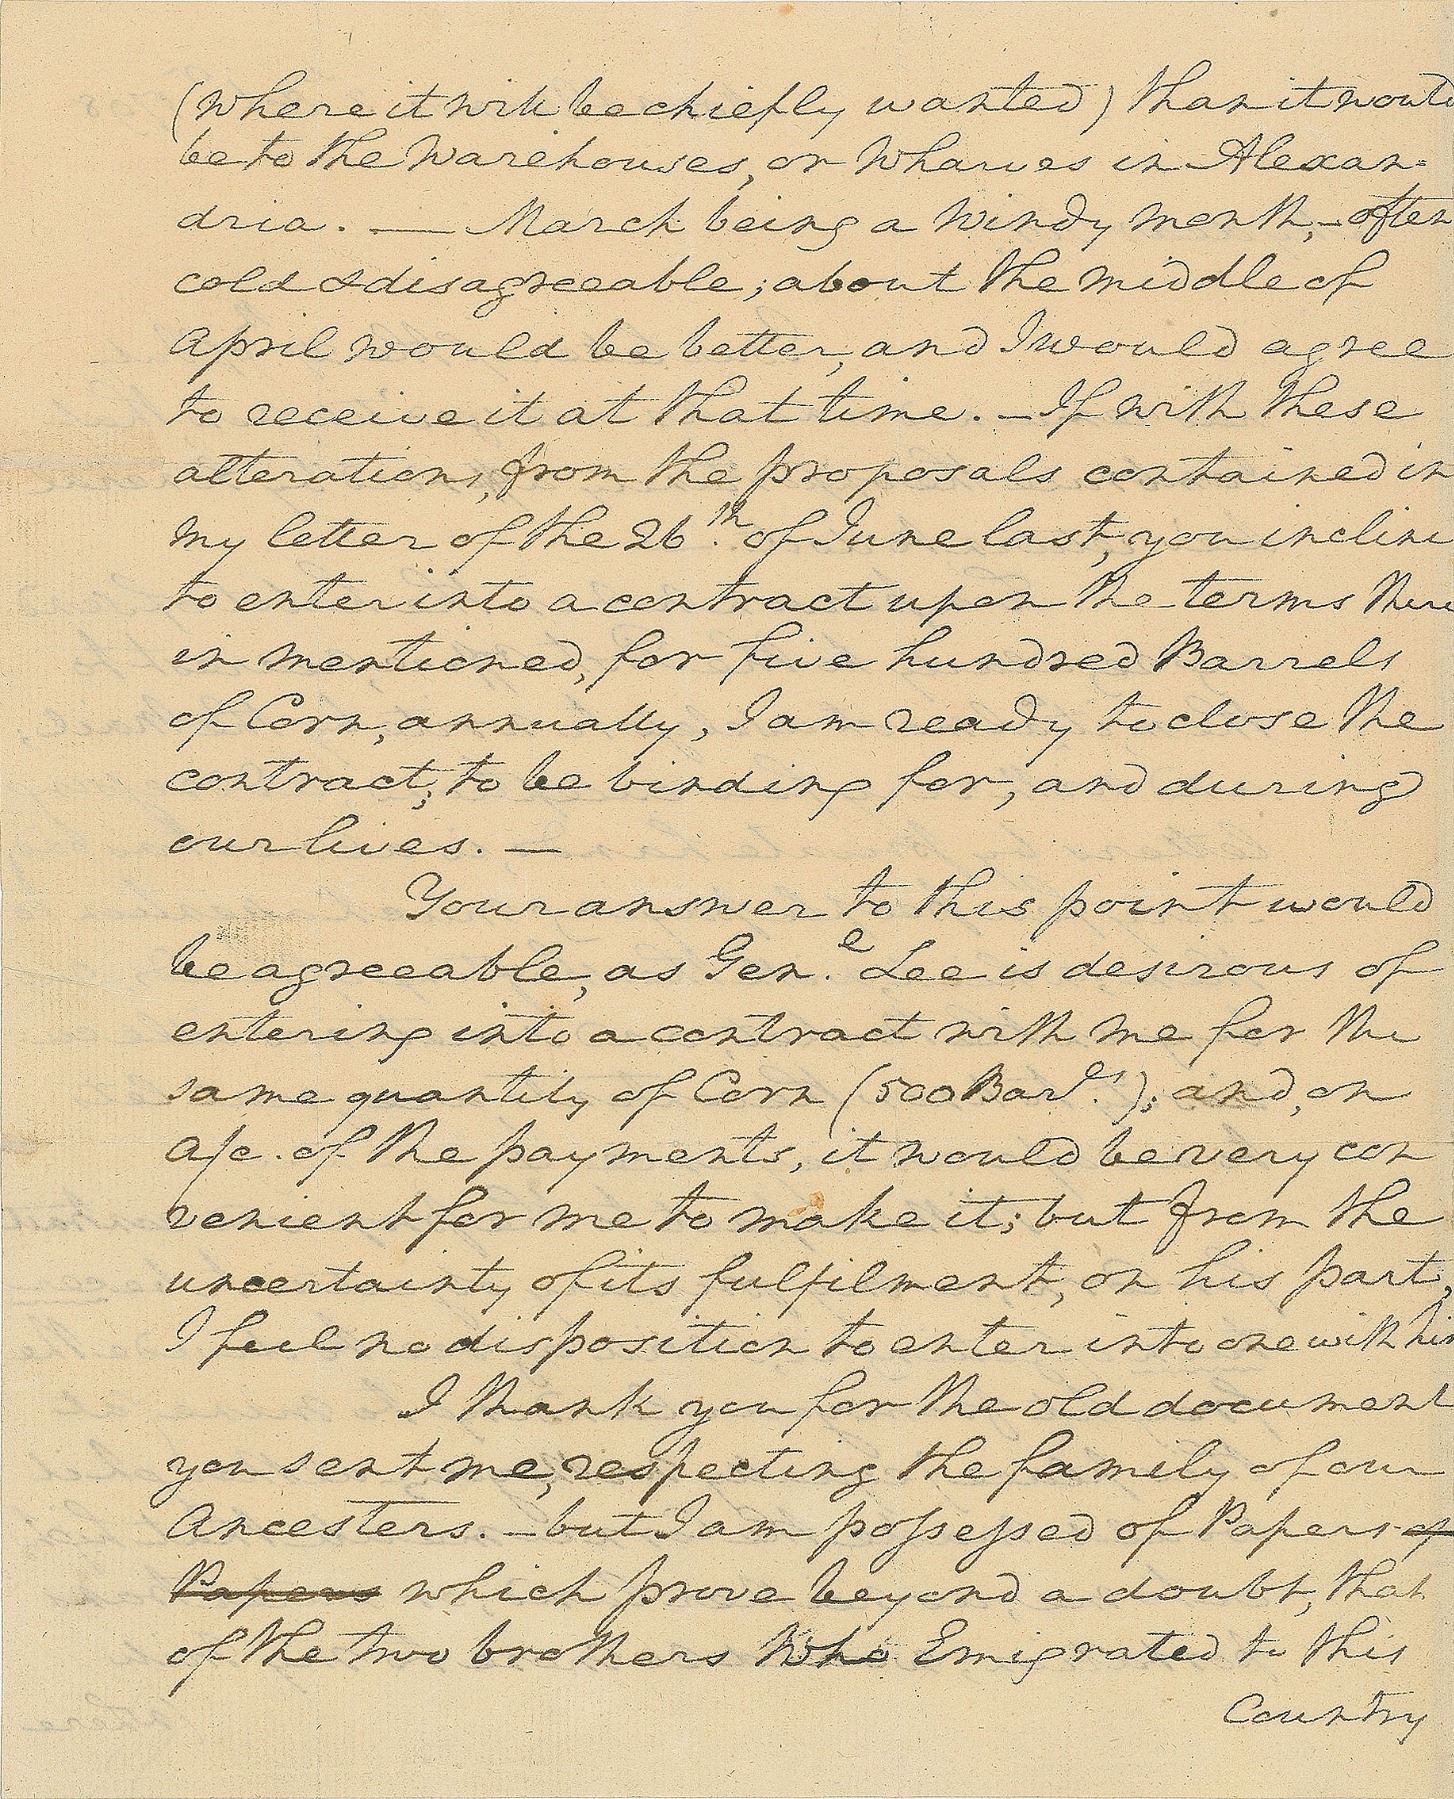 (where it will be chiefly wanted) than it would
be to the Warehouses, or Wharves in Alexan-
dria. — March being a Windy month, – often
cold & disagreeable; about the middle of
April would be better, and I would agree
to receive it at that time. – If with these
alterations, from the proposals contained in
my letter of the 26.th of June last, you incline
to enter into a contract upon the terms there
in mentioned, for five hundred Barrels
of Corn, annually, I am ready to close the
contract; to be binding for, and during
our lives. —
Your answer to this point would
be agreeable, as Gen.l Lee is desirous of
entering into a contract with me for the
same quantity of Corn (500 Barls.); and, on
a/c. of the payments, it would be very con
venient for me to make it; but from the
uncertainty of its fulfilment, on his part,
I feel no disposition to enter into one with him
I thank you for the old document
you sent me, respecting the family of our
Ancesters. – but I am possessed of Papers of
Papers which prove beyond a doubt, that
of the two brothers who Emigrated to this
Country